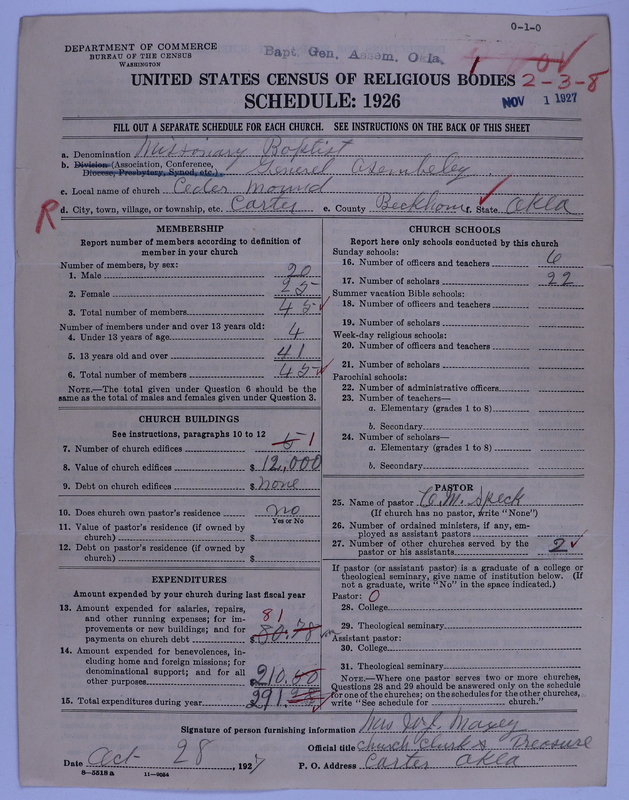 0-1-0
DEPARTMENT OF COMMERCE
BUREAU OF THE CENSUS
WASHINGTON
Bapt. Gen. Assem. Okla.
UNITED STATES CENSUS OF RELIGIOUS BODIES
2-3-8
SCHEDULE: 1926
NOV 1 1927
FILL OUT A SEPARATE SCHEDULE FOR EACH CHURCH. SEE INSTRUCTIONS ON THE BACK OF THIS SHEET
a. Denomination Missionary Baptist
b. Division (Association, Conference, Diocese, Presbytery, Synod, etc.) General Asembeley
c. Local name of church Ceder Mound
R d. City, town, village, or township, etc. Carter e. County Beckham f. State Okla
MEMBERSHIP
Report number of members according to definition of member in your church
Number of members, by sex:
1. Male 20
2. Female 25
3. Total number of members 45
Number of members under and over 13 years old:
4. Under 13 years of age 4
5. 13 years old and over 41
6. Total number of members 45
NOTE.—The total given under Question 6 should be the
same as the total of males and females given under Question 3.
CHURCH BUILDINGS
See instructions, paragraphs 10 to 12
7. Number of church edifices 1
8. Value of church edifices $ 12,000
9. Debt on church edifices $ none
10. Does church own pastor's residence no
Yes or No
11. Value of pastor's residence (if owned by
church) $
12. Debt on pastor's residence (if owned by
church) $
EXPENDITURES
Amount expended by your church during last fiscal year
13. Amount expended for salaries, repairs,
and other running expenses; for im-
provements or new buildings; and for
payments on church debt $ 80.78 81
14. Amount expended for benevolences, in-
cluding home and foreign missions; for
denominational support; and for all
other purposes 210.00
15. Total expenditures during year 291.
CHURCH SCHOOLS
Report here only schools conducted by this church
Sunday schools:
16. Number of officers and teachers 6
17. Number of scholars 22
Summer vacation Bible schools:
18. Number of officers and teachers
19. Number of scholars
Week-day religious schools:
20. Number of officers and teachers
21. Number of scholars
Parochial schools:
22. Number of administrative officers
23. Number of teachers—
a. Elementary (grades 1 to 8)
b. Secondary
24. Number of scholars—
a. Elementary (grades 1 to 8)
b. Secondary
PASTOR
25. Name of pastor C. M. Speck
(If church has no pastor, write "None")
26. Number of ordained ministers, if any, em-
ployed as assistant pastors
27. Number of other churches served by the
pastor or his assistants 2
If pastor (or assistant pastor) is a graduate of a college or
theological seminary, give name of institution below. (If
not a graduate, write "No" in the space indicated.)
Pastor: 0
28. College
29. Theological seminary
Assistant pastor:
30. College
31. Theological seminary
NOTE.—Where one pastor serves two or more churches,
Questions 28 and 29 should be answered only on the schedule
for one of the churches; on the schedules for the other churches,
write "See schedule for church."
Signature of person furnishing information Mrs Maxey
Official title Church Clerk & Treasure
Date Oct 28, 1927 P. O. Address Carter Okla
8—5518a 11—9054